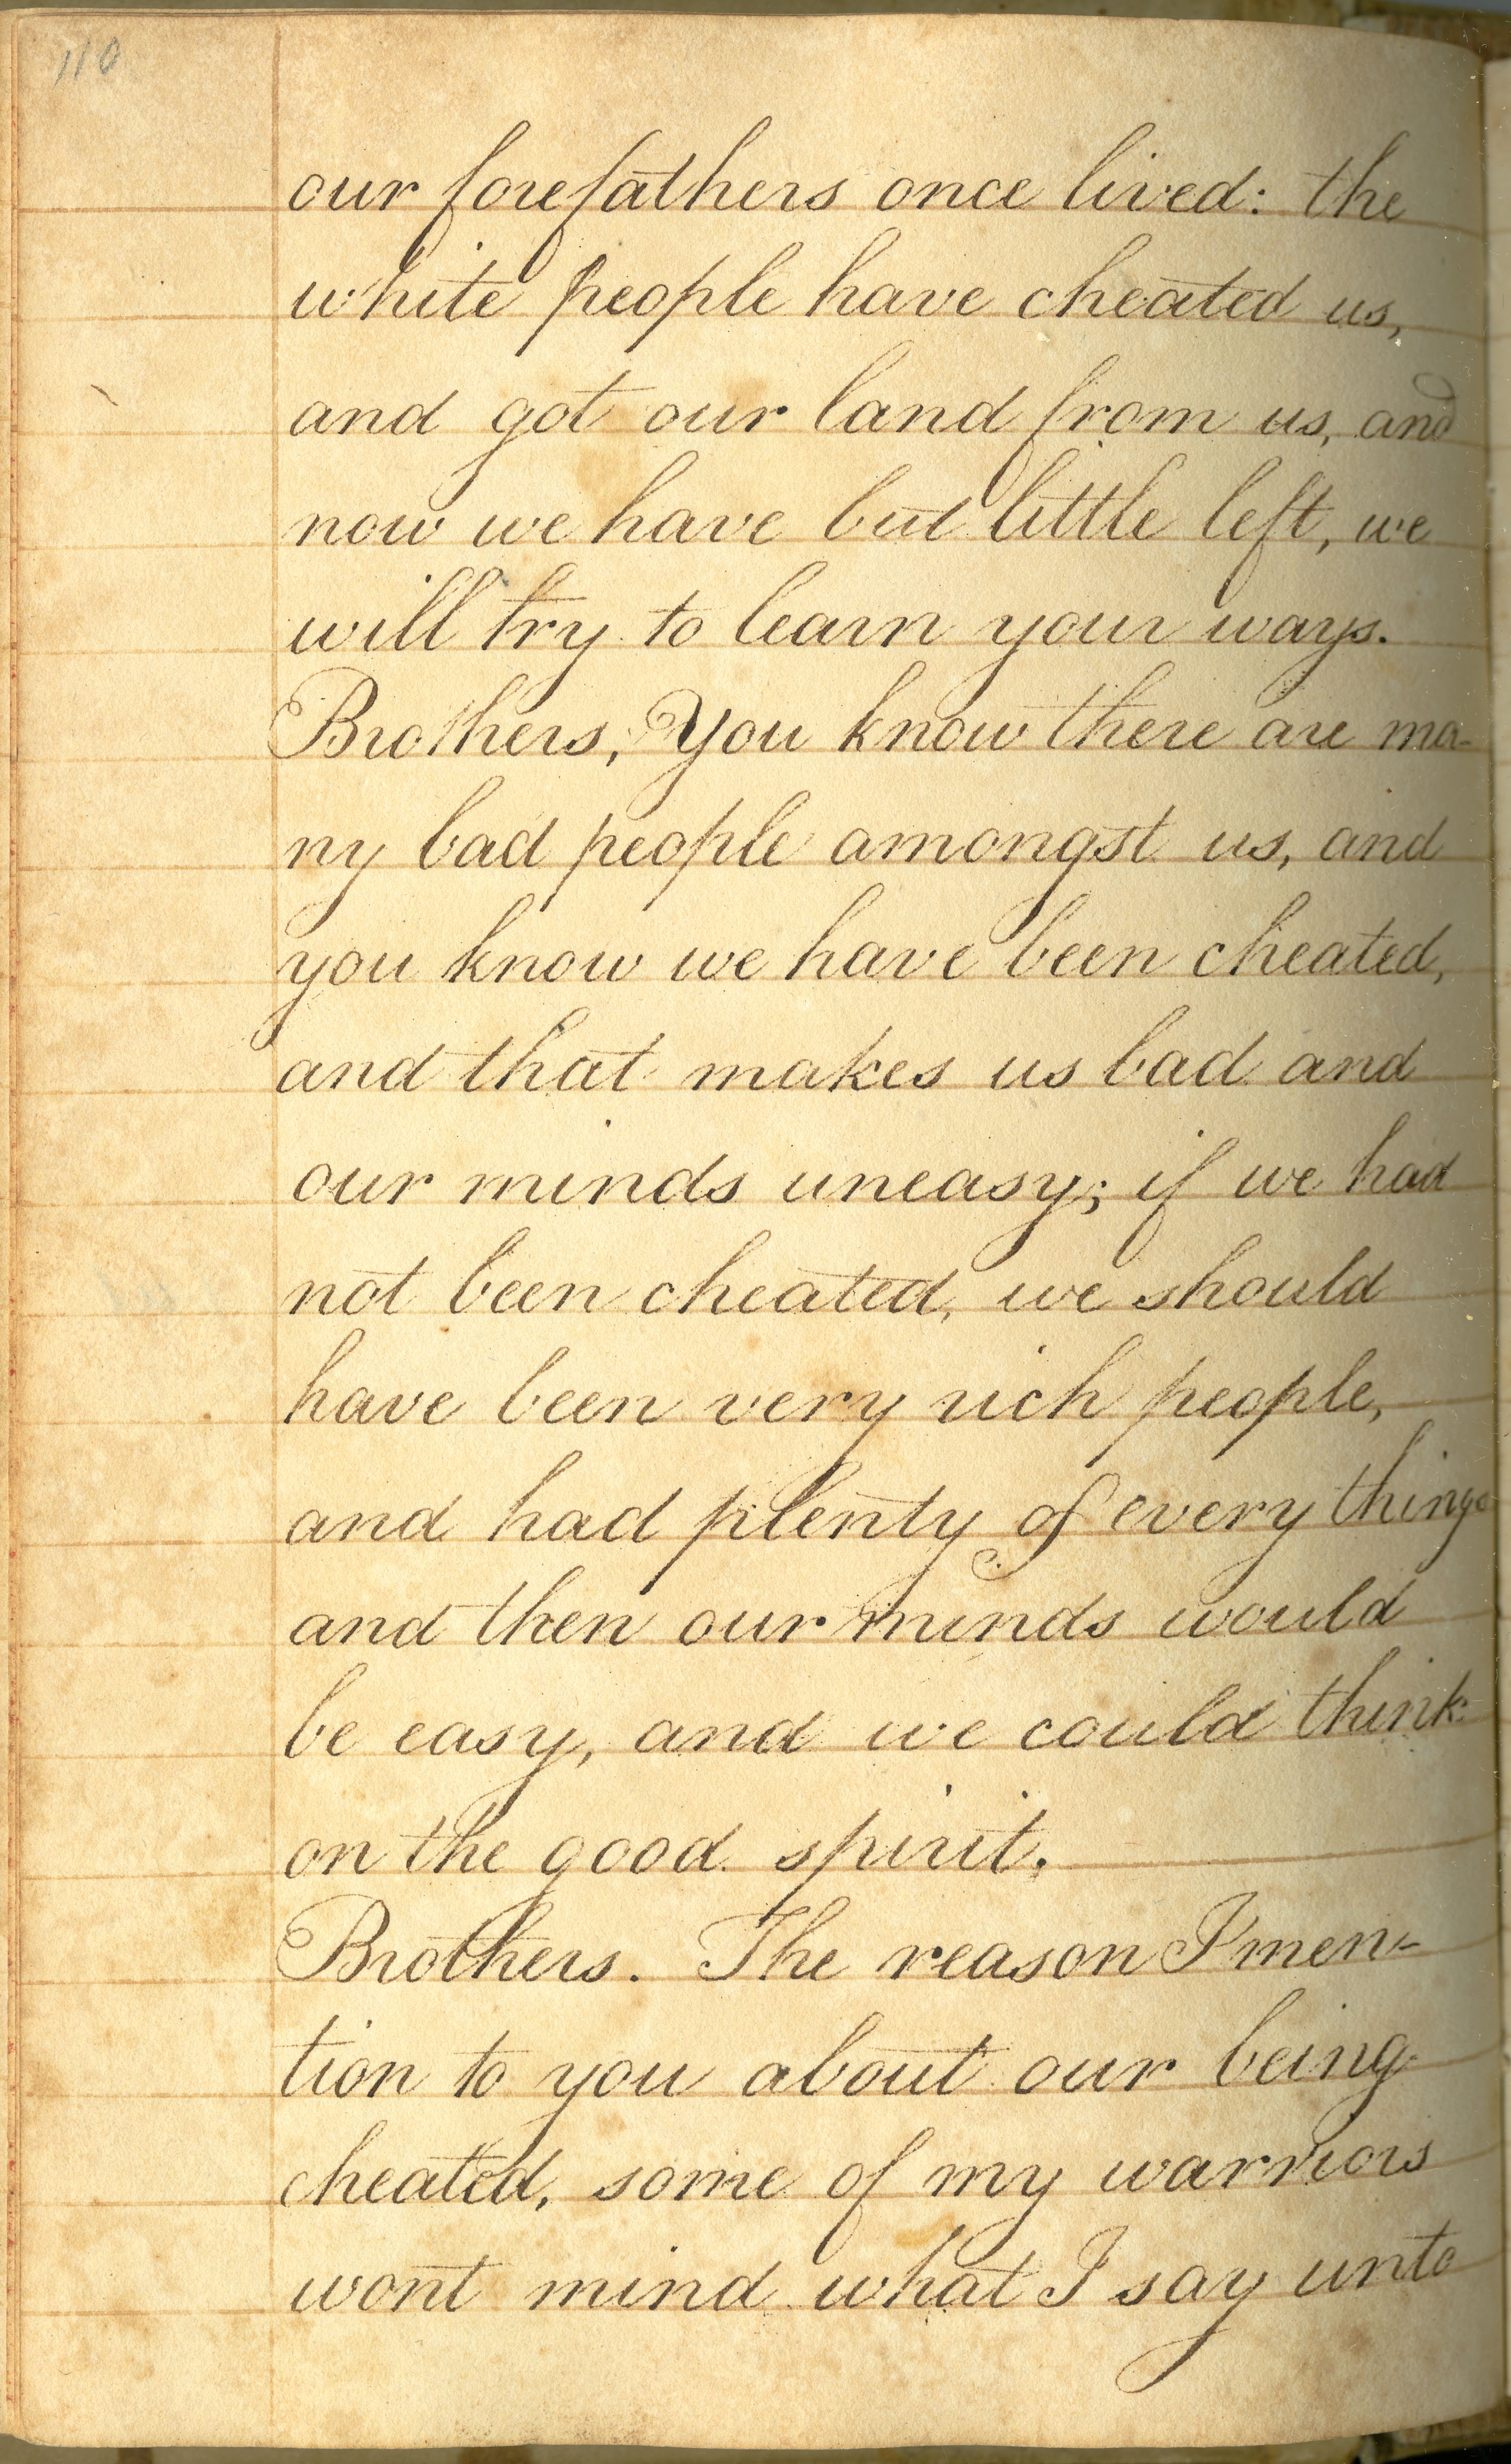 110
our forefathers once lived: the
white people have cheated us,
and got our land from us, and
now we have but little left, we
will try to learn your ways.
Brothers, You know there are ma-
ny bad people amongst us, and
you know we have been cheated,
and that makes us bad and
our minds uneasy; if we had
not been cheated, we should
have been very rich people,
and had plenty of every thing
and then our minds would
be easy, and we could think
on the good spirit.
Brothers. The reason I men-
tion to you about our being
cheated, some of my warriors
wont mind what I say unto